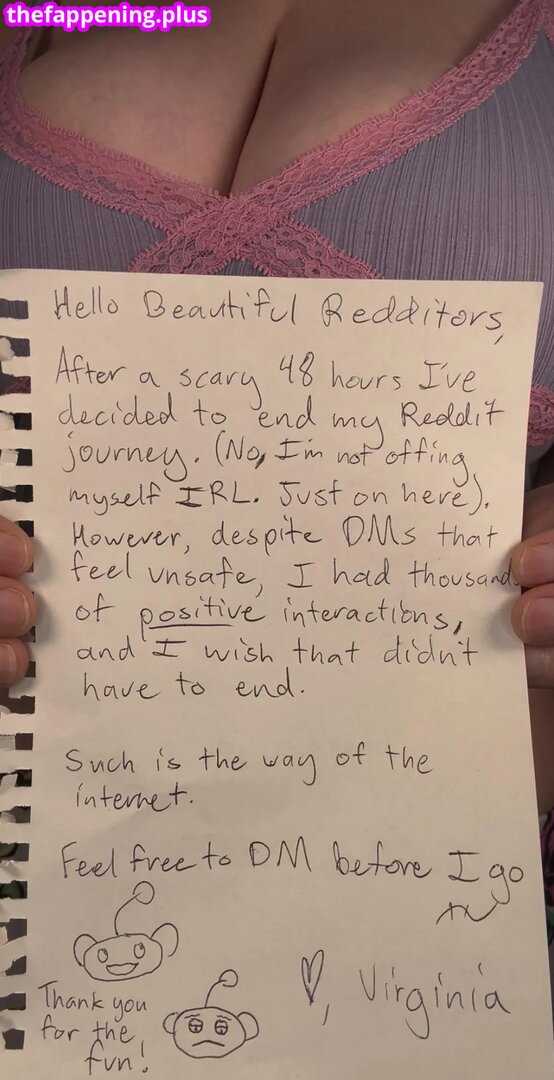 thefappening.plus
Hello Beautiful Redditors,
After a scary 48 hours I've
decided to end my Reddit
journey. (No, I'm not offing
myself IRL. Just on here).
However, despite DMs that
feel unsafe, I had thousand
of positive interactions,
and I wish that didn't
have to end.
Such is the way of the
internet.
Feel free to DM before I go
Thank you
for the
fun!
♡, Virginia